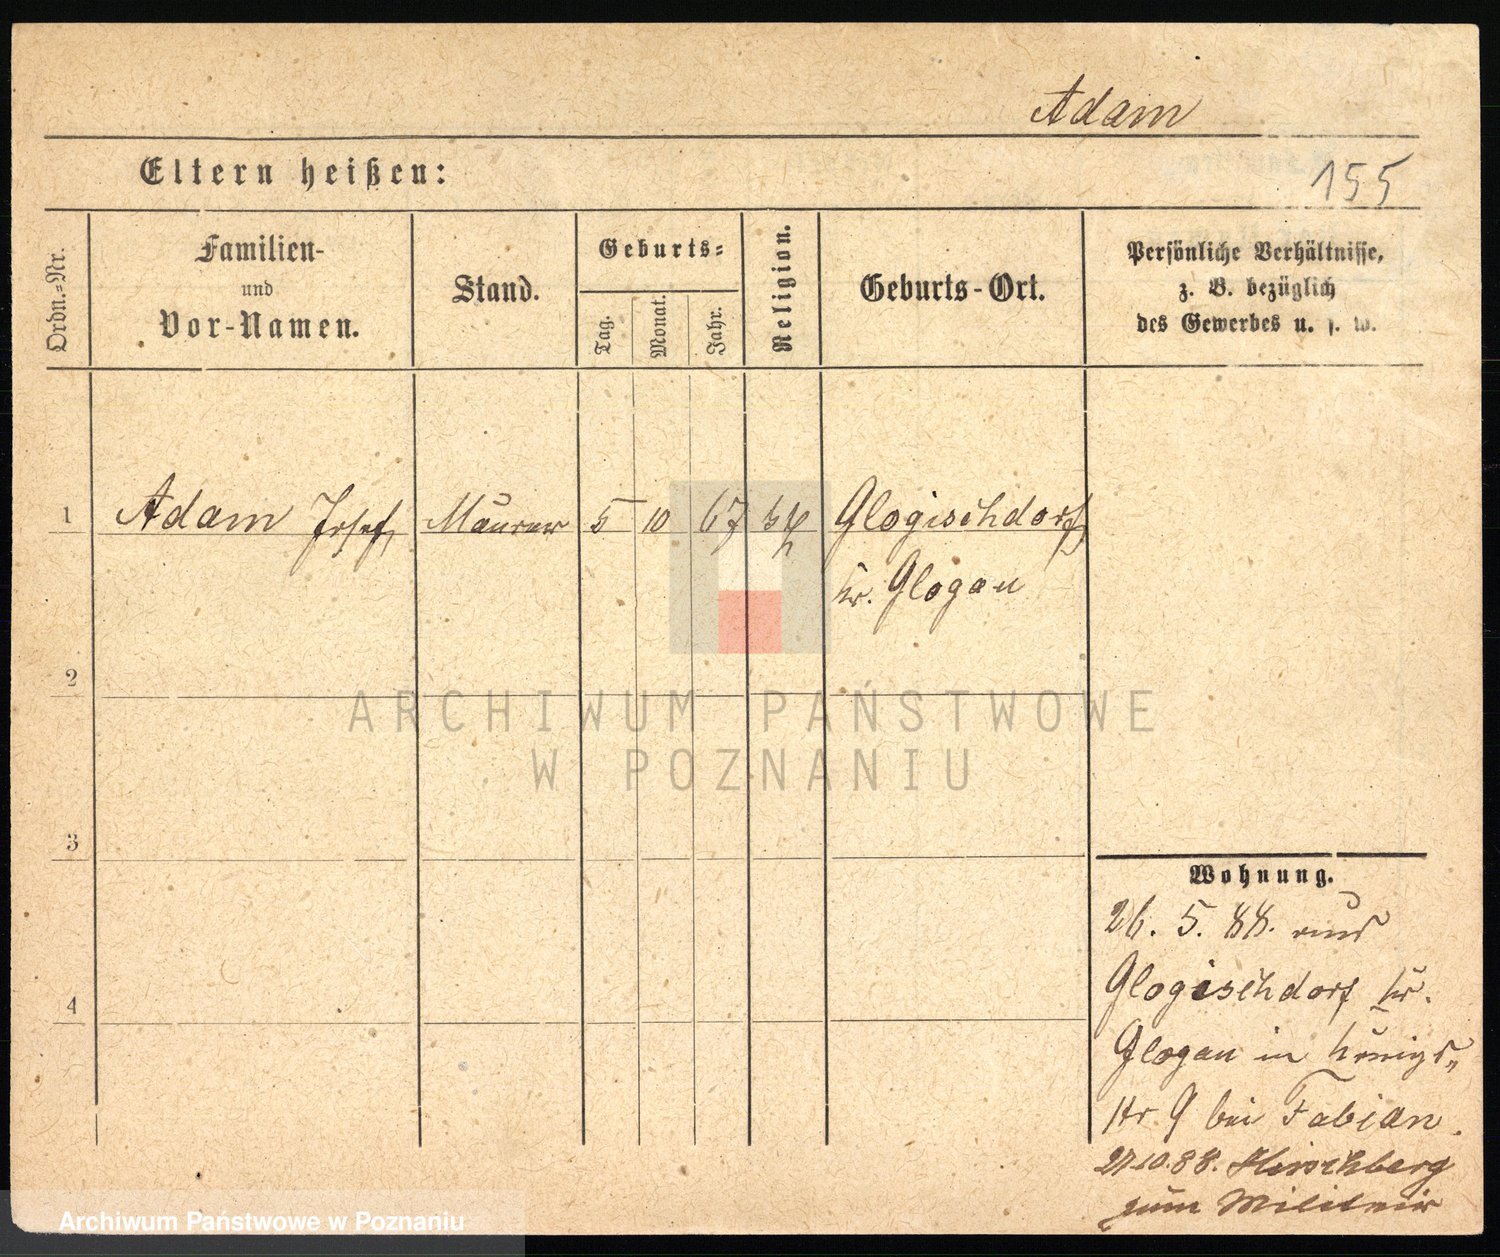 Adam
Eltern heißen:
155
Ordn.=Nr.
Familien-
und
Vor-Namen.
Stand.
Geburts=
Tag.
Monat.
Jahr.
Religion.
Geburts-Ort.
Persönliche Verhältnisse,
z. B. bezüglich
des Gewerbes u. s. w.
1 Adam Josef Maurer 5 10 67 kth Glogischdorf
Kr. Glogau
2
ARCHIWUM PAŃSTWOWE
W POZNANIU
3
Wohnung.
26. 5. 88. aus
Glogischdorf Kr.
4
Glogau in Königs„
str. 9 bei Fabian.
27.10.88. Hirschberg
zum Militair
Archiwum Państwowe w Poznaniu